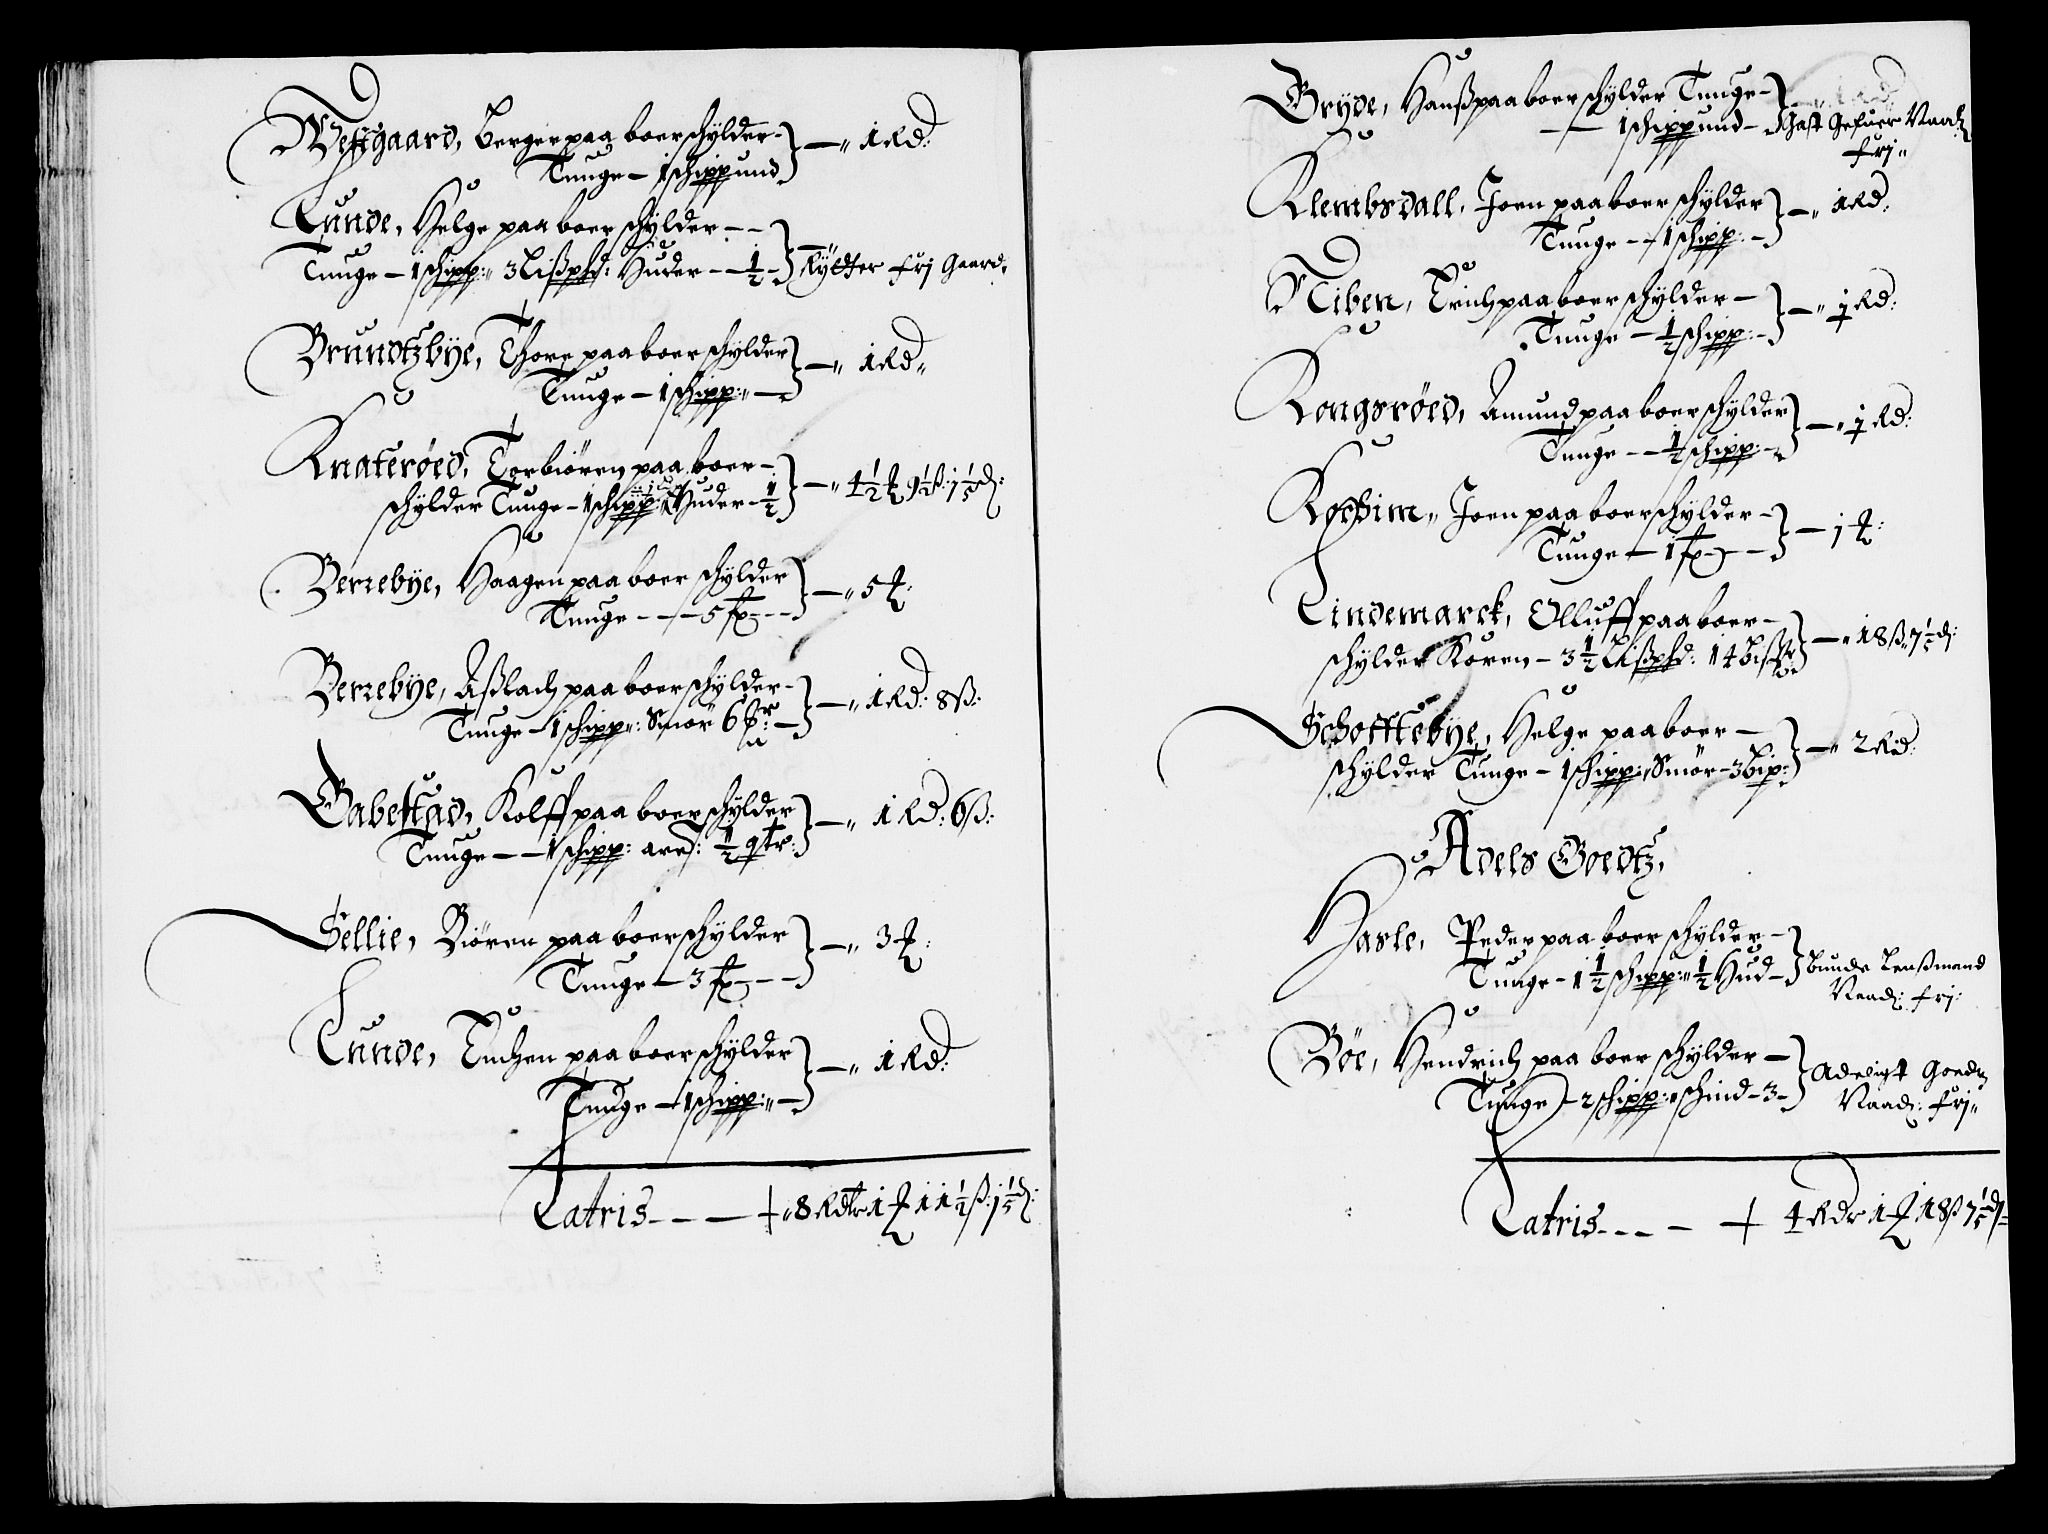 Westgaard, Berger paa boer schylder -
Tunge - 1 schippund } - " 1 Rd:
Lunde, Helge paa boer schylder - -
Tunge - 1 schipp: " 3 Lißphd: Huder - - 1/2 - } Rÿtter frj Gaard.
Brundtzbÿe, Thore paa boer schylder
Tunge - 1 schipp: " - } - " 1 Rd "
Knaterøed, Torbiören paa boer -
schylder Tunge - 1 schipp: Huder - 1/2 } - " 4 1/2 ꝉ 9 1/2 ß: 1 1/5 d:
Berrebÿe, Haagen paa boer schylder
Tunge - - - 5 fx - - } - " 5 ꝉ:
Berrebÿe, Aßlach paa boer schylder -
Tunge - 1 schipp: Smör 6 - } - " 1 Rd: 8 ß:
Gabestad, Rolff paa boer schylder
Tunge - - 1 schipp: 1/2 qtr: } - " 1 Rd: 6 ß:
Sellie, Biören paa boer schylder
Tunge - 3 fx - - } - " 3 ꝉ:
Lunde, paa boer schylder
Tunge - 1 schipp: " - } - " 1 Rd:
Latris - - - - " 8 Rdr 1 ꝉ 11 1/2 ß: 1 1/5 d:
Gryde, Hanß paa boer schylder Tunge -
- - 1 schippund - }
frj "
Klembsdall, Joen paa boer schylder
Tunge - - 1 schipp: - } - " 1 Rd:
Niben, Erich paa boer schylder -
Tunge - 1/2 schipp: - } - " 1/2 Rd:
Kongsrøed, Amund paa boer schylder
Tunge - - 1/2 schipp: - } - " 1/2 Rd:
Joen paa boer schylder -
Tunge - 1 fx - - } - 1 ꝉ:
Lindemarck, Olluff paa boer -
schylder Koren - 3 1/2 Lißphd: } - " 18 ß 7 1/5 d:
Schofftebÿe, Helge paa boer -
schylder Tunge - 1 schipp: Smör - 3 bip: } - " 2 Rd:
Adels Goedtz,
Hasle, Peder paa boer schylder -
Tunge - 1 1/2 schipp: " 1/2 Hud - } Bunde Lenßmand
Naad: frj:
Böe, Hendrich paa boer schylder -
Tunge - 2 schipp: schind - 3 - } Adeligt Goedz
Naad: frj "
Latris - - - - 4 Rdr 1 ꝉ 18 ß 7 1/5 d